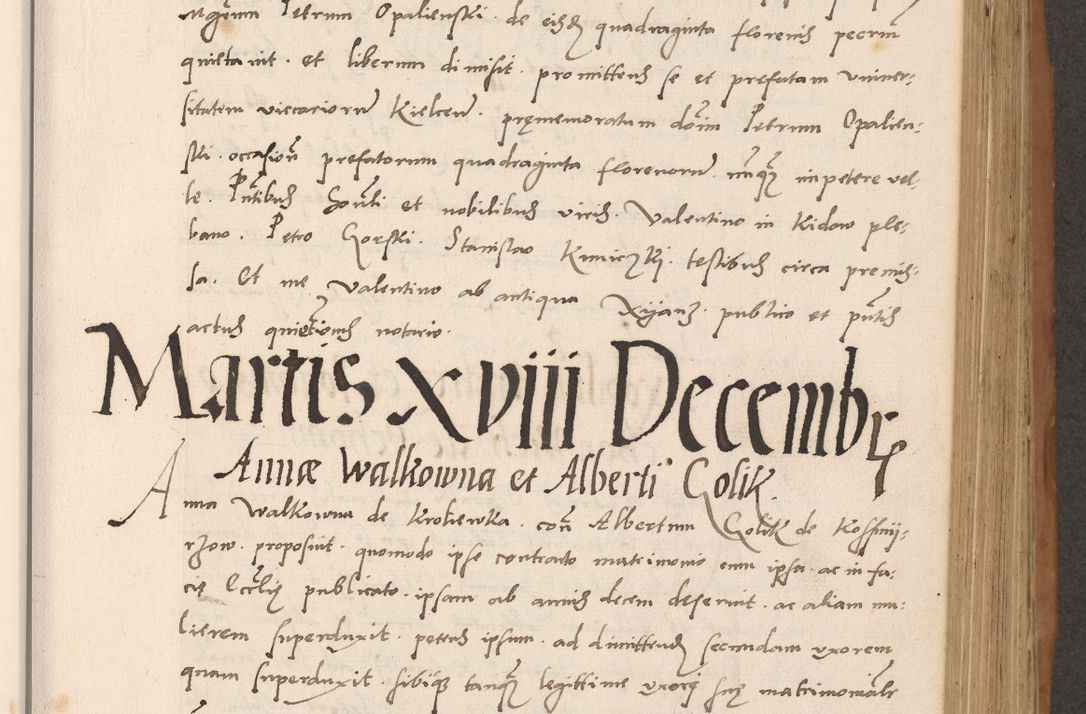 Mgrum Petrum Opalienski de eisdem quadraginta florenis pecuniarum
quietavit. et liberum dimisit. promittens se et prefatam univer-
sitatem vicariorum Kielcen. pręmemoratum dominum Petrum Opalien-
ski. occasione prefatorum quadraginta florenorum. nunquam impetere vel-
le. Presentibus honorabili et nobilibus viris. Valentino in Kidow ple-
bano. Petro Gorski. Stanislao testibus circa premis-
sa. Et me Valentino ab antiqua publico et presentis
actus quietationis notario.
Martis XVIII Decembr
Annæ Walkowna et Alberti Golik.
Anna Walkowna de Krokiewka. contra Albertum Golik de Kossmi-
rzow. proposuit. quomodo ipse contracto matrimonio cum ipsa. ac in fa-
cię Ecclesię publicato. ipsam ab annis decem deseruit. ac aliam mu-
lierem superduxit. petens ipsum. ad dimittendum secundam uxorem
quam superduxit. sibique tanquam legittime uxori suę matrimoniale